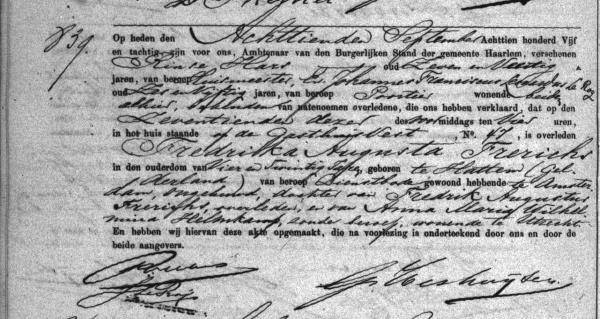 839.
Op heden den Achttienden September Achttien honderd Vijf
en tachtig zijn voor ons, Ambtenaar van den Burgerlijken Stand der gemeente Haarlem, verschenen
Rinse Stars oud Zeven en Veertig
jaren, van beroep Huismeester, En Johannes Franciscus
oud Zes en Vijftig jaren, van beroep Portier wonende beide
alhier, van natenoemen overledene, die ons hebben verklaard, dat op den
Zeventienden dezer des voormiddags ten Vier uren,
in het huis staande op de Gasthuisvest No. 47, is overleden
Fredrika Augusta Frerichs
in den ouderdom van Vier en Twintig Jaren, geboren te Hattem (Gel-
derland) van beroep Dienstbode gewoond hebbende te Amster-
dam, dochter van Fredrik Augustus
Frerichs, overleden, en van Anna Maria Wilhel-
mina Helmkamp, zonder beroep, wonende te Utrecht.
En hebben wij hiervan deze akte opgemaakt, die na voorlezing is onderteekend door ons en door de
beide aangevers.